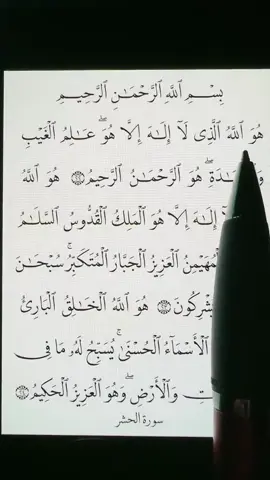 بِسْمِ ٱللَّهِ ٱلرَّحْمَـٰنِ ٱلرَّحِيمِ
هُوَ ٱللَّهُ ٱلَّذِى لَآ إِلَـٰهَ إِلَّا هُوَ ۖ عَـٰلِمُ ٱلْغَيْبِ
هُوَ ٱلرَّحْمَـٰنُ ٱلرَّحِيمُ ٢٢ هُوَ ٱللَّهُ
لَآ إِلَـٰهَ إِلَّا هُوَ ٱلْمَلِكُ ٱلْقُدُّوسُ ٱلسَّلَـٰمُ
ٱلْمُهَيْمِنُ ٱلْعَزِيزُ ٱلْجَبَّارُ ٱلْمُتَكَبِّرُ ۚ سُبْحَـٰنَ
شْرِكُونَ ٢٣ هُوَ ٱللَّهُ ٱلْخَـٰلِقُ ٱلْبَارِئُ
ٱلْأَسْمَآءُ ٱلْحُسْنَىٰ ۚ يُسَبِّحُ لَهُۥ مَا فِى
تِ وَٱلْأَرْضِ ۖ وَهُوَ ٱلْعَزِيزُ ٱلْحَكِيمُ ٢٤
سورة الحشر